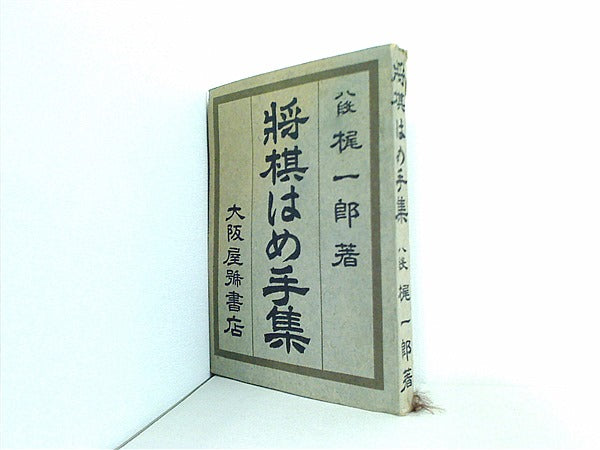 八段 梶一郎著
將棋はめ手集
大阪屋號書店
將棋はめ手集 八段 梶一郎著